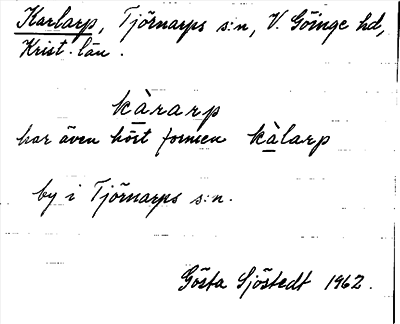 Karlarp, Tjörnarps s:n, V. Göinge hd,
Krist. län.
kàrarp
har även hört formen kàlarp
by i Tjörnarps s:n.
Gösta Sjöstedt 1962.